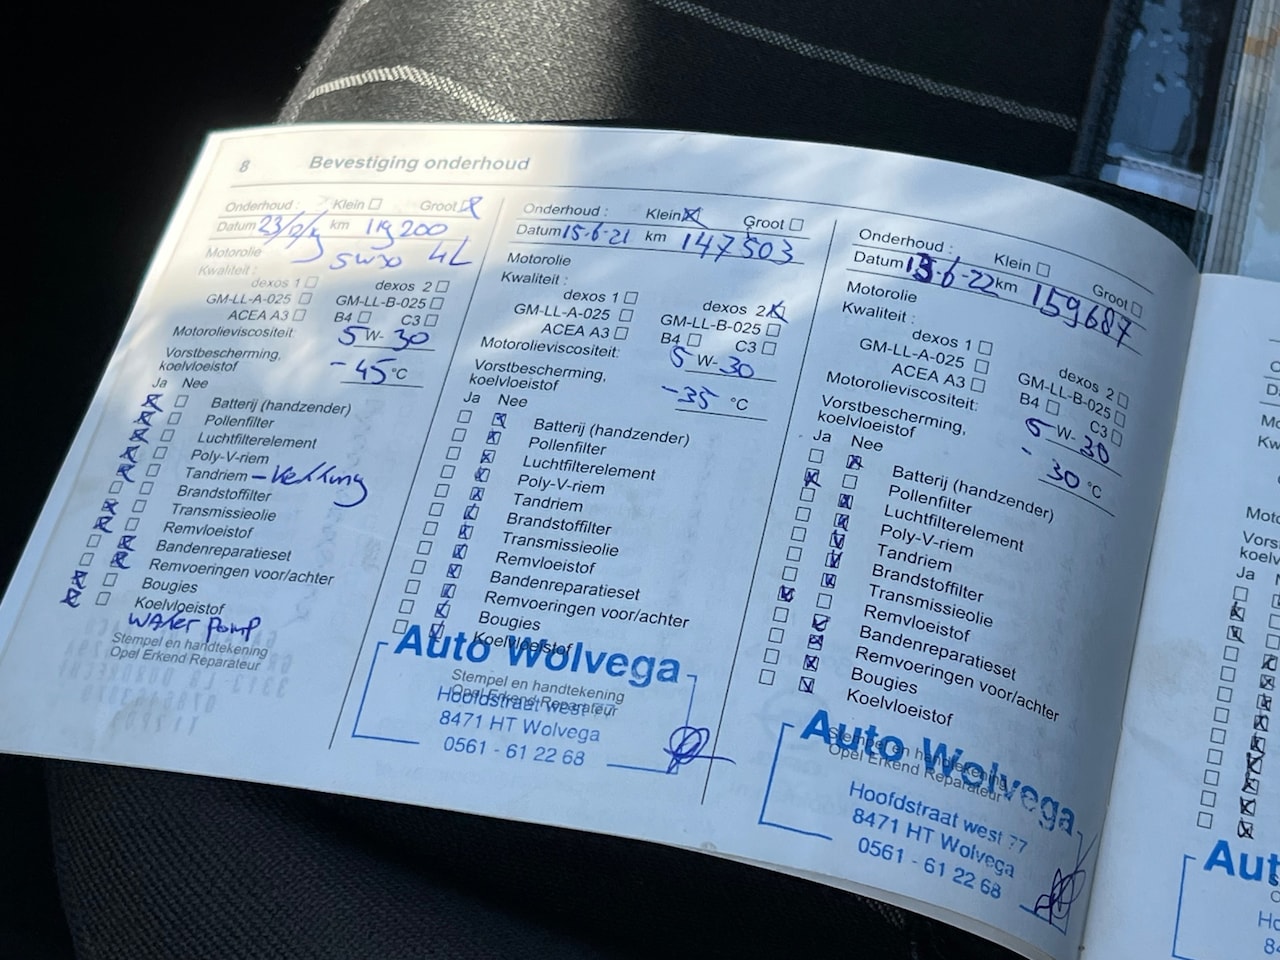 8 Bevestiging onderhoud
Onderhoud : Klein Groot
Datum 23/2/ km 119200
Motorolie 5w30 4L
Kwaliteit :
dexos 1 dexos 2
GM-LL-A-025 GM-LL-B-025
ACEA A3 B4 C3
Motorolieviscositeit: 5 W- 30
Vorstbescherming,
koelvloeistof -45 °C
Ja Nee
Batterij (handzender)
Pollenfilter
Luchtfilterelement
Poly-V-riem
Tandriem
Brandstoffilter
Transmissieolie
Remvloeistof
Bandenreparatieset
Remvoeringen voor/achter
Bougies
Koelvloeistof
Water pomp
Stempel en handtekening
Opel Erkend Reparateur
Onderhoud : Klein Groot
Datum 15-6-21 km 147503
Motorolie
Kwaliteit :
dexos 1 dexos 2
GM-LL-A-025 GM-LL-B-025
ACEA A3 B4 C3
Motorolieviscositeit: 5 W- 30
Vorstbescherming,
koelvloeistof -35 °C
Ja Nee
Batterij (handzender)
Pollenfilter
Luchtfilterelement
Poly-V-riem
Tandriem
Brandstoffilter
Transmissieolie
Remvloeistof
Bandenreparatieset
Remvoeringen voor/achter
Bougies
Koelvloeistof
Auto Wolvega
Stempel en handtekening
Opel Erkend Reparateur
Hoofdstraat west 77
8471 HT Wolvega
0561 - 61 22 68
Onderhoud : Klein Groot
Datum 13-6-22 km 159687
Motorolie
Kwaliteit :
dexos 1 dexos 2
GM-LL-A-025 GM-LL-B-025
ACEA A3 B4 C3
Motorolieviscositeit: 5 W- 30
Vorstbescherming,
koelvloeistof - 30 °C
Ja Nee
Batterij (handzender)
Pollenfilter
Luchtfilterelement
Poly-V-riem
Tandriem
Brandstoffilter
Transmissieolie
Remvloeistof
Bandenreparatieset
Remvoeringen voor/achter
Bougies
Koelvloeistof
Auto Wolvega
Stempel en handtekening
Opel Erkend Reparateur
Hoofdstraat west 77
8471 HT Wolvega
0561 - 61 22 68
Ja